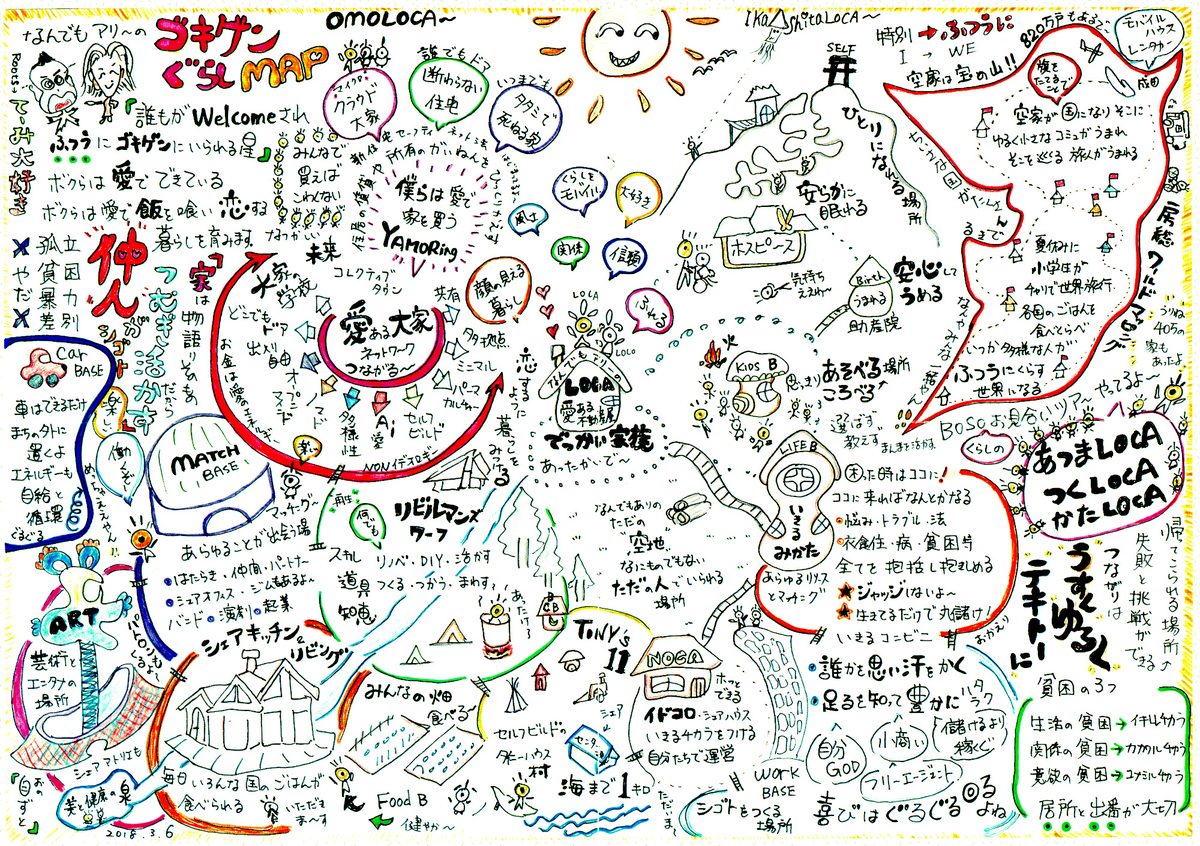 なんでもアリ〜の
ゴキゲン
ぐらしMAP
OMOLOCA〜
『誰もがWelcomeされ
ふつうにゴキゲンにいられる星』
ボクらは愛でできている
ボクらは愛で飯を喰い恋する
暮らしを育みます。
てーみ大好き
孤立
や貧困
だ暴力
差別
仲人
シゴト
つむぎ活かす
家は
物語り
だから
みんなで
買えば
こわくない
マイクロ
クラウド
大家
誰でもドア
断わらない
住史
いつまでも
タタミで
死ねる家
所有のがいねんを
僕らは愛で
家を買う
YAMORing
未来
コレクティブ
タウン
大家の
学校
どこでも
ドア
出入り
自由
お金は愛のエネルギー
愛ある大家
ネットワーク
つながる〜
共有
多拠点
ミニマル
パーマ
カルチャー
セルフ
ビルド
Ai
堂
多様
性
ノマド
オープン
マインド
NONイデオロギー
顔の見える
暮らし
くらしを
モバイル
大好き
風土
関係
信頼
ふれる
LOCA
LOCO
なんでもアリーの
LOCA
愛ある不動産
でっかい家族
あったかいで〜
恋
するように
暮らしをみつける
IkaAshitaLOCA〜
SELF
ひとりになれる場所
安らかに
眠れる
ホスピース
気持ち
ええわ〜
Birth
うまれる
助産院
安心して
うめる
特別→ふつうに
I → WE
空家は宝の山!!
820万戸もあるよ
モバイル
ハウス
レンタカー
成田
腹を
たてるってこと
空家が国になりそこに
ゆるく小さなコミュがうまれ
そこを巡る旅人がうまれる
房総ワールドマップ
夏休みに
小学生が
チャリで世界旅行。
各国のごはんを
食べくらべ
いつか多様な人が
ふつうにくらす
世界になる
405の
家も
あったよ
火
KIDS B
おもいっきり
あそべる場所
ころべる
選ばず、
教えず
まんまを活かす。
BOSOお見合いツアーやってるよ〜
くらしの
あつまLOCA
つくLOCA
かたLOCA
帰ってこられる場所
失敗と挑戦ができる
つながりは
うすくゆるく
テキトーに
LIFE B
いきる
みかた
あらゆるリソース
とマッチング
困った時はココに!
ココに来ればなんとかなる
悩み・トラブル・法
衣食住・病・貧困等
全てを抱括し抱きしめる
★ジャッジしないよ〜
★生きてるだけで丸諸け!
いきるコンビニ
なんでもありの
ただの
空地
なにものでもない
ただの人でいられる
場所
Car
BASE
車はできるだけ
まちの外に
置くよ
エネルギーも
自給と
循環
ぐるぐる
楽し
働くぞ
MATCH
BASE
マッチング〜
あらゆることが出会う場
はたらき・仲間・パートナー
シェアオフィス・ジムもあるよ〜
バンド・演劇・起業
楽しい
再生
何でも
リビルマンズ
ワーフ
スキル
道具
知恵
リノベ・DIY・活かす
つくる・つかう・まわす
あたたける
ART
芸術と
エンタメの
場所
シェアアトリエも
美と健康の泉
草堂
2018.3.6
シェアキッチン&
リビング
毎日いろんな国のごはんが
食べられる
いただきま〜す
みんなの畑
食べる〜
Food B
健やか〜
TINY's
11
セルフビルドの
タイニーハウス
村
シェア
センター
海まで1キロ
NOGA
ホッと
できる
イドコロ・シェアハウス
いきるチカラをつける
自分たちで運営
ただいま〜
WORK
BASE
シゴトをつくる
場所
誰かを思い汗をかく
足るを知って豊かに
ハタ
ラク
自分
GOD
小商い
儲けるより
稼ぐ
フリーエージェント
喜びはぐるぐる回る
よね
貧困の3つ
生活の貧困→
関係の貧困→
意欲の貧困→
居所と出番が大切